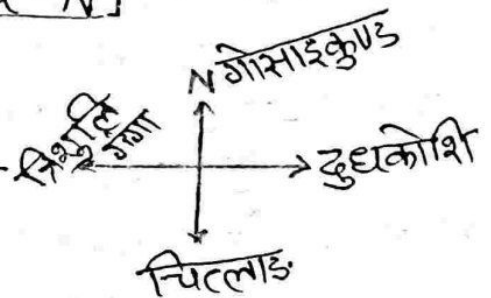 N]
N गोसाइकुण्ड
त्रिशुलि
गंगा
दुधकोशि
चित्लाङ